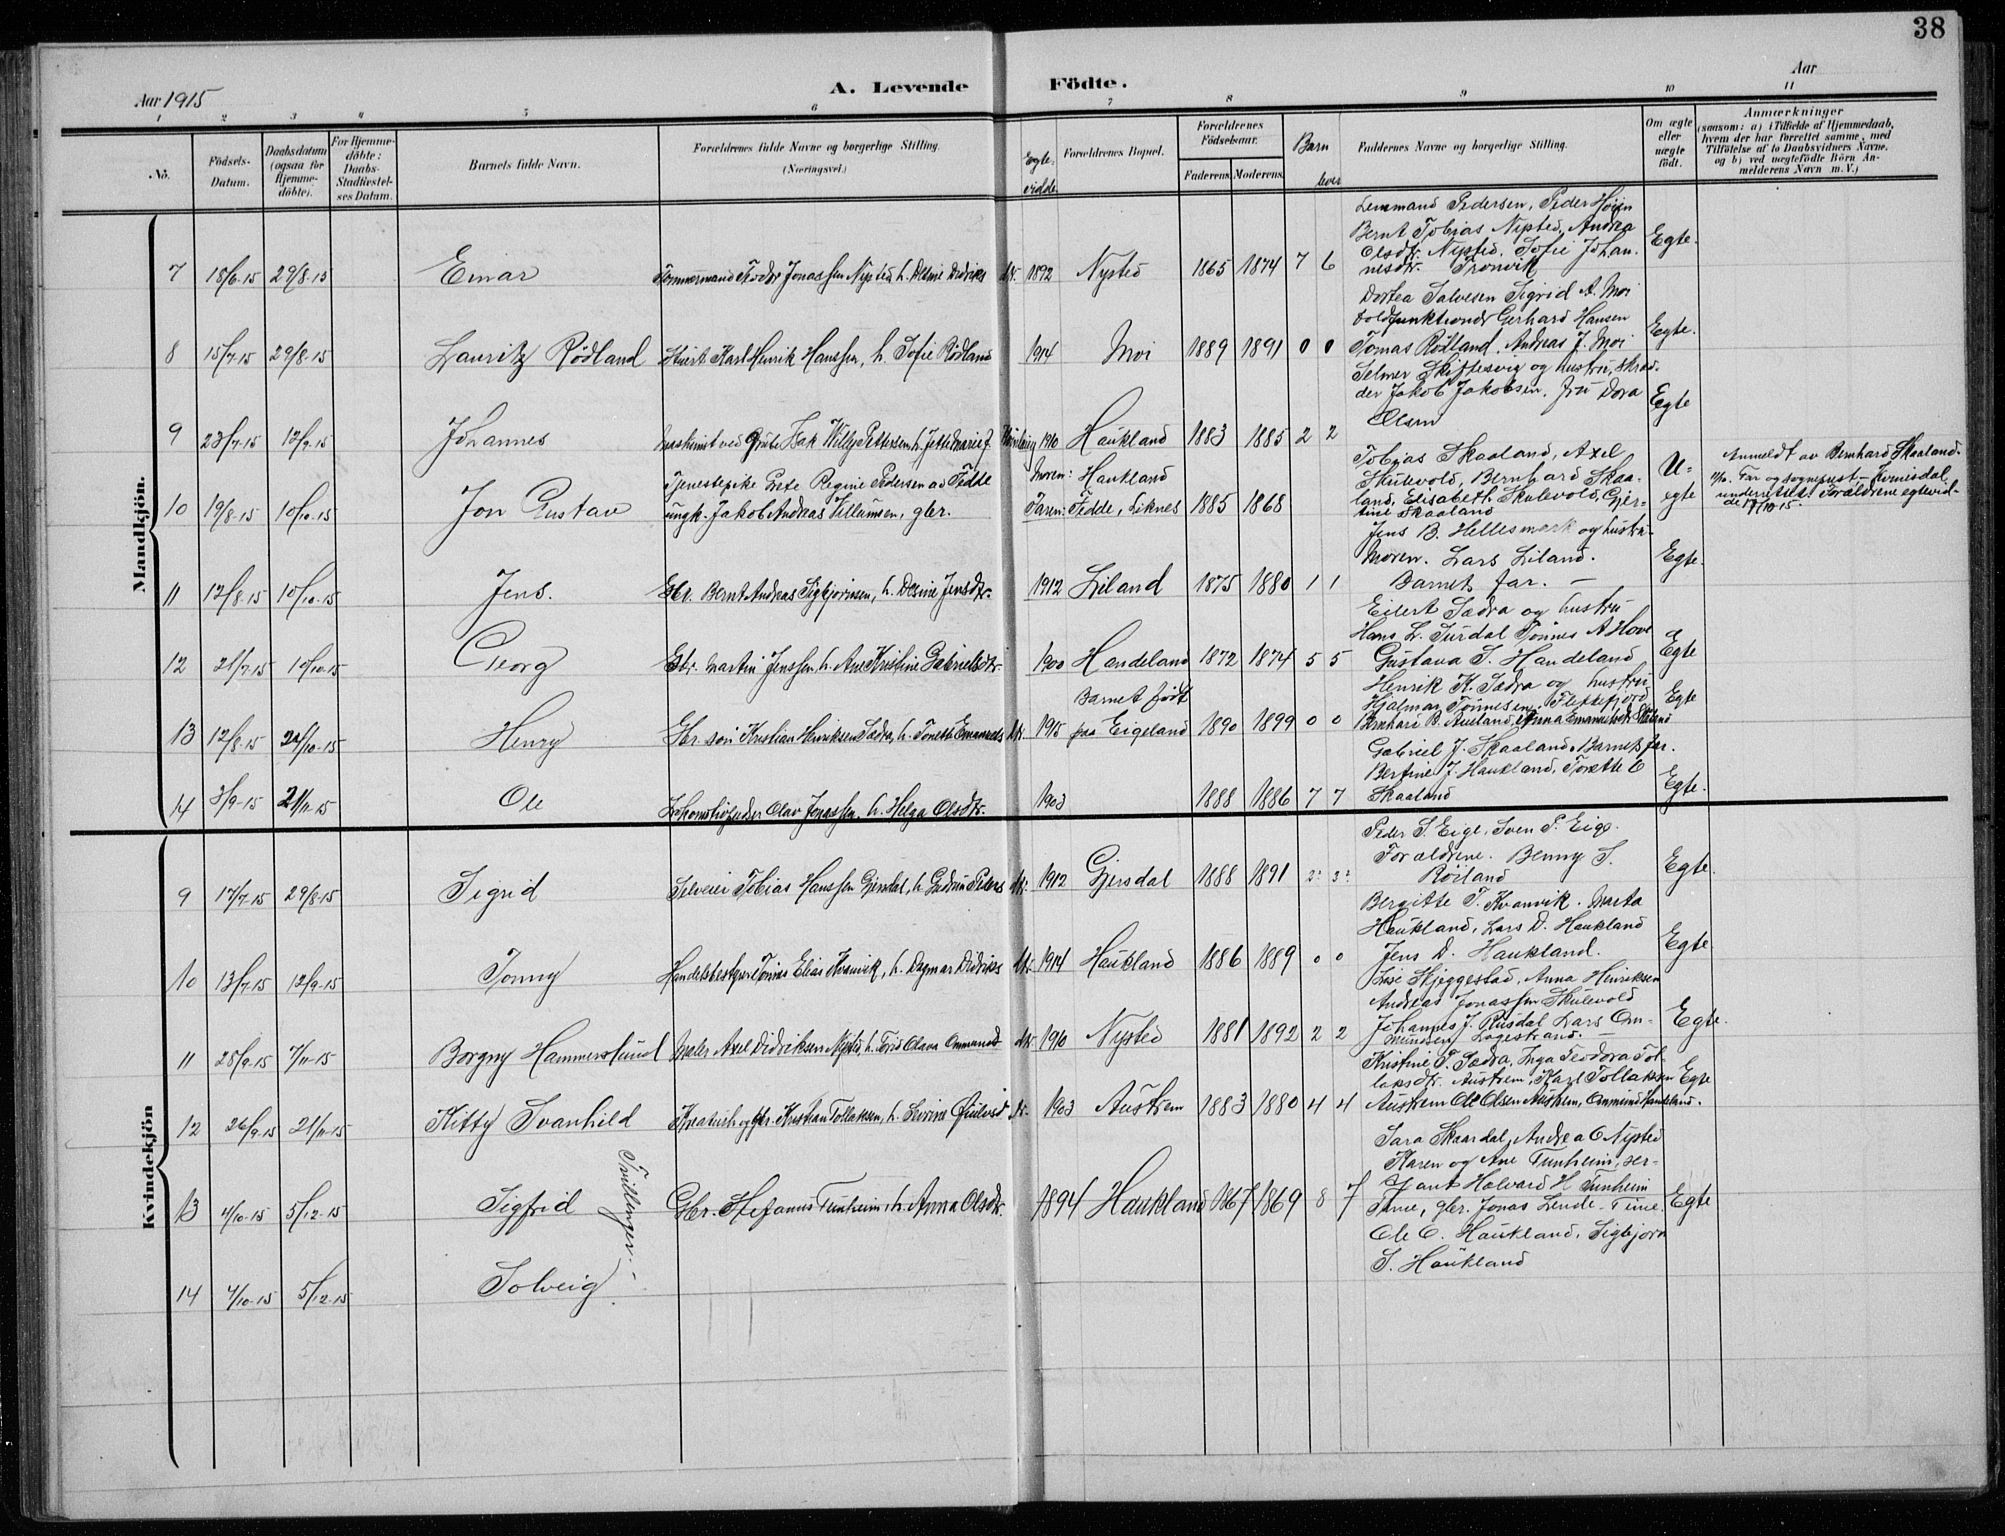 38
Aar 1915
A. Levende Födte.
Aar
1 2 3 4 5 6 7 8 9 10 11
No.
Födsels-Datum.
Daabsdatum (ogsaa for Hjemme-döbte).
For Hjemme-döbte: Daabs-Stadfæstelses Datum.
Barnets fulde Navn.
Forældrenes fulde Navne og borgerlige Stilling. (Næringsvei.)
Egte-vidde
Forældrenes Bopæl.
Forældrenes Födselsaar. Faderens. Moderens.
Barn lever
Faddernes Navne og borgerlige Stilling.
Om ægte eller uægte födt.
Anmærkninger (saasom: a) i Tilfælde af Hjemmedaab, hvem der har forrettet samme, med Tilföielse af to Daabsvidners Navne, og b) ved uægtefödte Börn Anmelderens Navn m. V.)
Mandkjön.
7 18/6-15 29/8-15 Einar Tømmermand Teodor Jonassen Nysted h. Desine Didriks dtr. 1892 Nysted 1865 1874 7 6
Lemmand Pedersen, Peder
Bernt Tobias Nysted, Andrea
Olsdtr. Nysted, Sofie Johan-
nesdtr. Tronvik
Egte
8 15/7-15 29/8-15 Lauritz Rødland Karl Henrik Hanssen, h. Sofie Rødland 1914 Moi 1889 1891 0 0
Dortea Salvesen Sigrid A. Moi
Toldfunktionær Gerhard Hansen
Tomas Rødland, Andreas J. Moi
Egte.
9 23/7-15 12/9-15 Johannes Isak Willy Pettersen h. Jette Marie J. 1910 Haukland 1883 1885 2 2
Selmer Skiftesvig og hustru, Skræd-
der Jakob Jakobsen, fru Dora
Olsen
Egte
10 19/8-15 10/10-15 Jon Gustav Tjenestepike Grete Regine Pedersen av Fedde
ungk. Jakob Andreas Villumsen, gbr.
Moren: Haukland
Faren: Fedde, Liknes 1885 1868
Tobias Skaaland, Axel
Skulevold, Bernhard Skaa-
land, Elisabeth Skulevold, Gjer-
tine Skaaland
U-
egte
Anmeldt av Bernhard Skaaland.
11/10. Far og sogneprest Kvinisdal
underrettet. Foreldrene egtevid-
de 17/10 15.
11 12/8-15 10/10-15 Jens. Gbr. Bernt Andreas Sigbjørnsen, h. Desine Jensdtr. 1912 Liland 1875 1880 1 1
Jens B. Hellesmark og hustru
Moren. Lars Liland.
Barnets far. —
Egte
12 21/7-15 10/10-15 Georg Gbr. Martin Jenssen h. Ane Kristine Gabrielsdtr. 1900 Handeland 1872 1874 5 5
Eilert Sædra og hustru
Hans L. Surdal Tønnes A Hove
Gustava S. Handeland
Egte
13 12/8-15 24/10-15 Henry Gbr. søn Kristian Henriksen Sædra, h. Tonette Emanuels dtr. 1915 Barnet født paa Eigeland 1890 1899 0 0
Henrik K. Sædra og hustru
Hjalmar Tønnesen, Flekkefjord
Bernhard B. Aueland, Anna Emanuelsdtr.
Egte
14 3/9-15 21/11-15 Ole Olav Jonassen, h. Helga Olsdtr. 1903 1888 1886 7 7
Gabriel J. Skaaland. Barnets far.
Bertine J. Haukland, Tonette O
Skaaland
Egte.
Kvindekjön
9 17/7-15 29/8-15 Sigrid Selveier Tobias Hanssen Gjersdal, h. Gudrun Peders dtr. 1912 Gjersdal 1888 1891 2 3
Peder S. Eige, Sven P. Eige.
Forældrene. Benny S.
Röiland
Egte.
10 13/7-15 12/9-15 Tonny Handelsbestyrer Tønnes Elias Kvanvik, h. Dagmar Didriks dtr 1914 Haukland 1886 1889 0 0
Bergitte T. Kvanvik. Marta
Haukland, Lars D. Haukland
Jens D. Haukland.
Egte
11 25/9-15 7/11-15 Borgny Hammerslund Maler Axel Didriksen Nysted, h. Olava Ommunds dtr. 1910 Nysted 1881 1892 2 2
Lise Skjeggestad, Anna Henriksen
Andreas Jonassen Skulevold
Johannes J. Rusdal Lars Om-
mundsen Logestrand.
Egte.
12 26/9-15 21/11-15 Kitty Svanhild gbr. Kristian Tollaksen, h. Severine dtr. 1903 Austrem 1883 1880 4 4
Kristine P. Sædra, Inga Teodora Tol-
laksdtr. Austrem, Karl Tollaksen
Austrem Ole Olsen Austrem, Ommund Handeland.
Egte
13 4/10-15 5/12-15 Sigfrid Gbr. Stefanus Tunheim, h. Anna Olsdtr. 1894 Haukland 1867 1869 8 7
Sara Skaardal, Andrea O Nysted
Karen og Ane Tunheim, ser-
sjant Halvard H Tunheim
Time, gbr. Jonas Lende - Time.
Ole O. Haukland, Sigbjørn
S. Haukland
Egte
Tvillinger.
14 4/10-15 5/12-15 Solveig